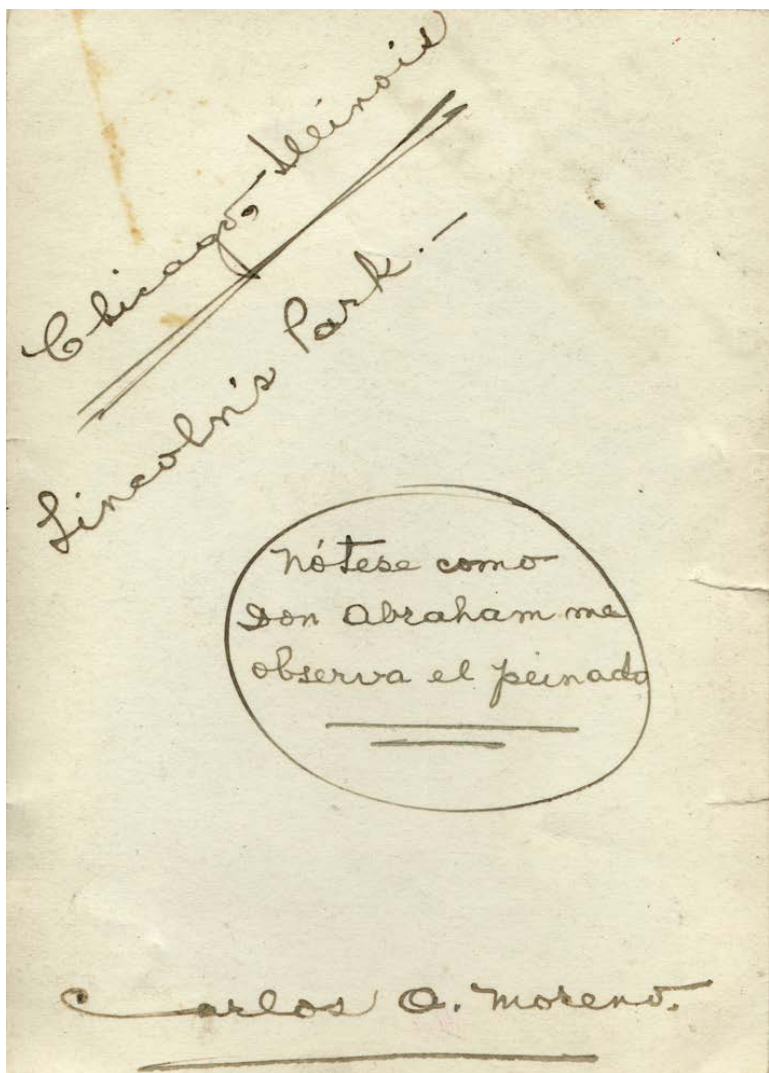 Chicago, Illinois
Lincoln's Park.—
Nótese como
Don Abraham me
observa el peinado
Carlos A. Moreno.